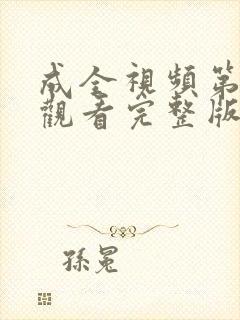 成全視頻第
觀看完整版
孫冕